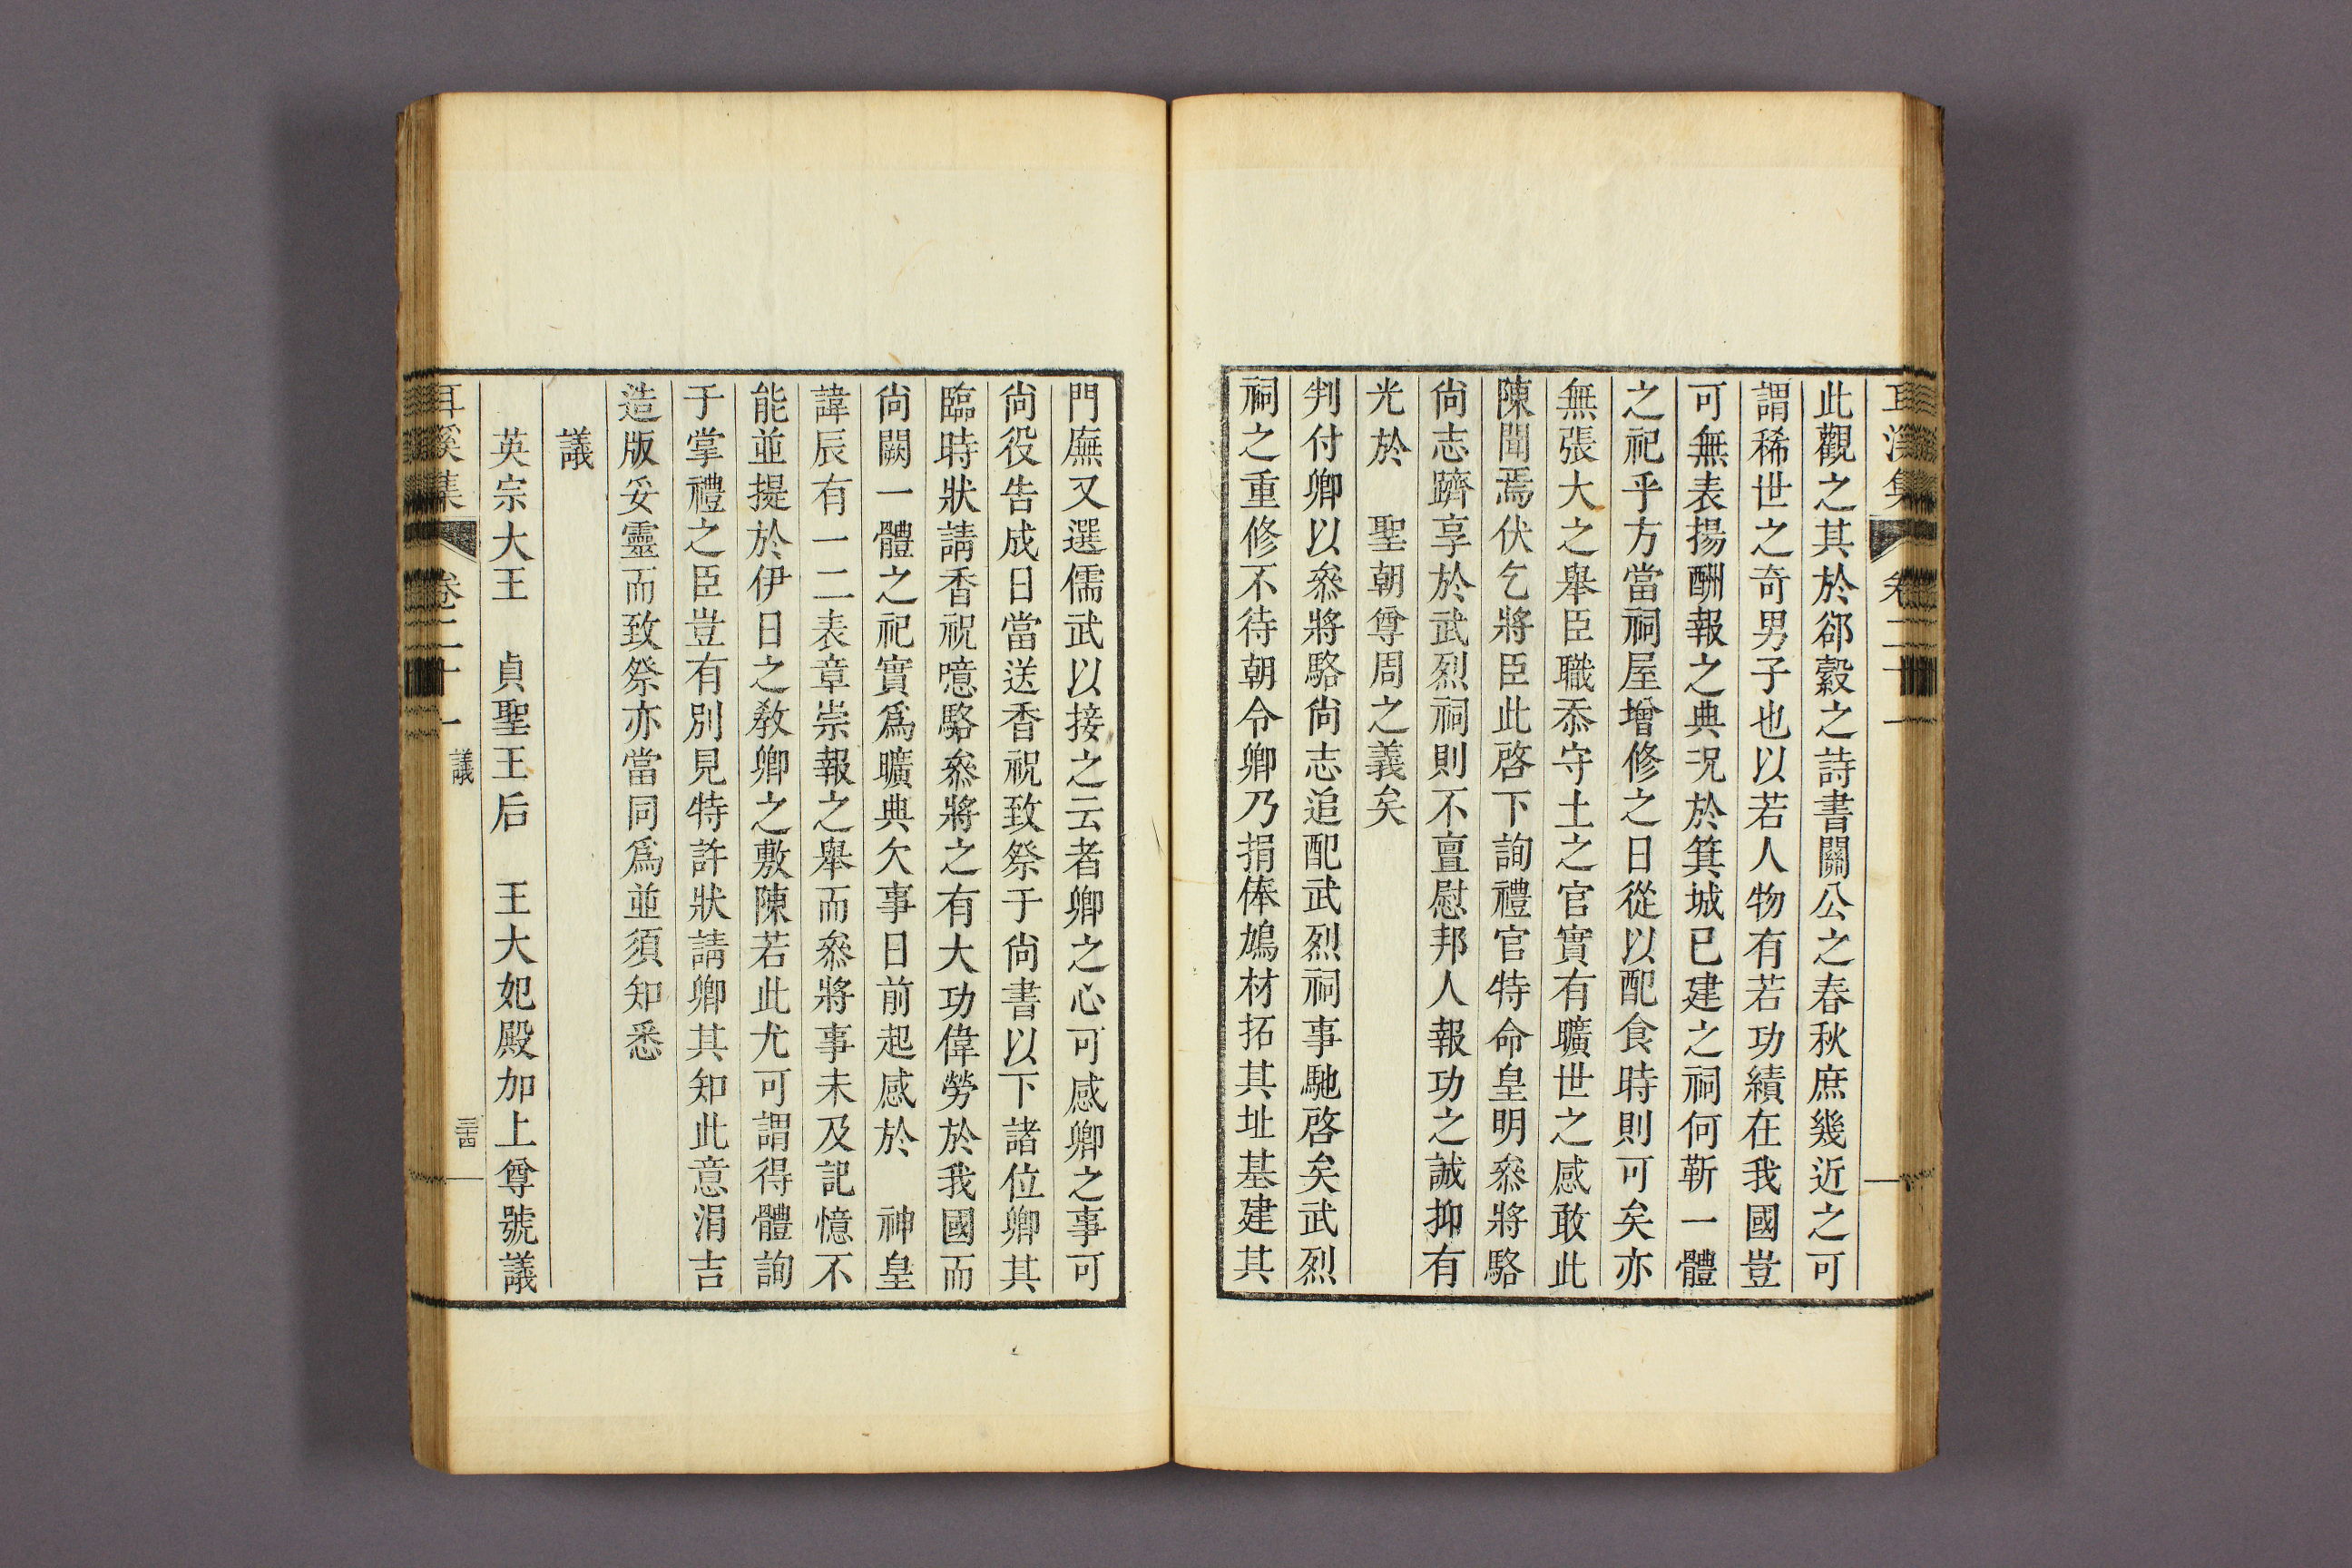 耳溪集 卷二十一
此觀之其於郤縠之詩書關公之春秋庶幾近之可
謂稀世之奇男子也以若人物有若功績在我國豈
可無表揚酬報之典况於箕城已建之祠何靳一體
之祀乎方當祠屋增修之日從以配食時則可矣亦
無張大之舉臣職忝守土之官實有曠世之感敢此
陳聞焉伏乞將臣此啓下詢禮官特命皇明叅將駱
尙志躋享於武烈祠則不亶慰邦人報功之誠抑有
光於 聖朝尊周之義矣
判付卿以叅將駱尙志追配武烈祠事馳啓矣武烈
祠之重修不待朝令卿乃捐俸鳩材拓其址基建其
門廡又選儒武以接之云者卿之心可感卿之事可
尙役告成日當送香祝致祭于尙書以下諸位卿其
臨時狀請香祝噫駱叅將之有大功偉勞於我國而
尙闕一體之祀實爲曠典欠事日前起感於 神皇
諱辰有一二表章崇報之舉而叅將事未及記憶不
能並提於伊日之敎卿之敷陳若此尤可謂得體詢
于掌禮之臣豈有別見特許狀請卿其知此意涓吉
造版妥靈而致祭亦當同爲並須知悉
議
英宗大王 貞聖王后 王大妃殿加上尊號議
耳溪集 卷二十一 議 三十四